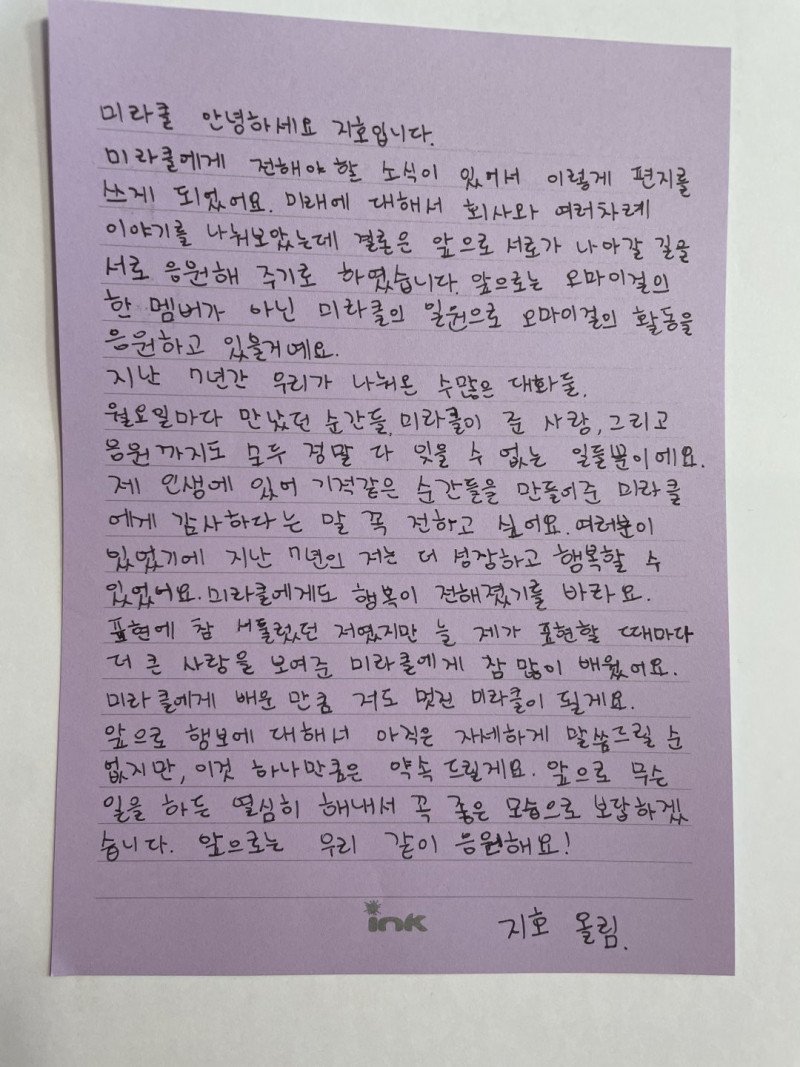 미라클 안녕하세요 지호입니다.
미라클에게 전해야 할 소식이 있어서 이렇게 편지를
쓰게 되었어요. 미래에 대해서 회사와 여러차례
이야기를 나눠보았는데 결론은 앞으로 서로가 나아갈 길을
서로 응원해 주기로 하였습니다. 앞으로는 오마이걸의
한 멤버가 아닌 미라클의 일원으로 오마이걸의 활동을
응원하고 있을거예요.
지난 7년간 우리가 나눠온 수많은 대화들.
월요일마다 만났던 순간들. 미라클이 준 사랑, 그리고
응원까지도 모두 정말 다 잊을 수 없는 일들뿐이에요.
제 인생에 있어 기적같은 순간들을 만들어준 미라클
에게 감사하다는 말 꼭 전하고 싶어요. 여러분이
있었기에 지난 7년의 저는 더 성장하고 행복할 수
있었어요. 미라클에게도 행복이 전해졌기를 바라요.
표현에 참 서툴렀던 저였지만 늘 제가 표현할 때마다
더 큰 사랑을 보여준 미라클에게 참 많이 배웠어요.
미라클에게 배운 만큼 저도 멋진 미라클이 될게요.
앞으로 행보에 대해서 아직은 자세하게 말씀드릴 순
없지만, 이것 하나만큼은 약속 드릴게요. 앞으로 무슨
일을 하든 열심히 해내서 꼭 좋은 모습으로 보답하겠
습니다. 앞으로는 우리 같이 응원해요!
ink
지호 올림.